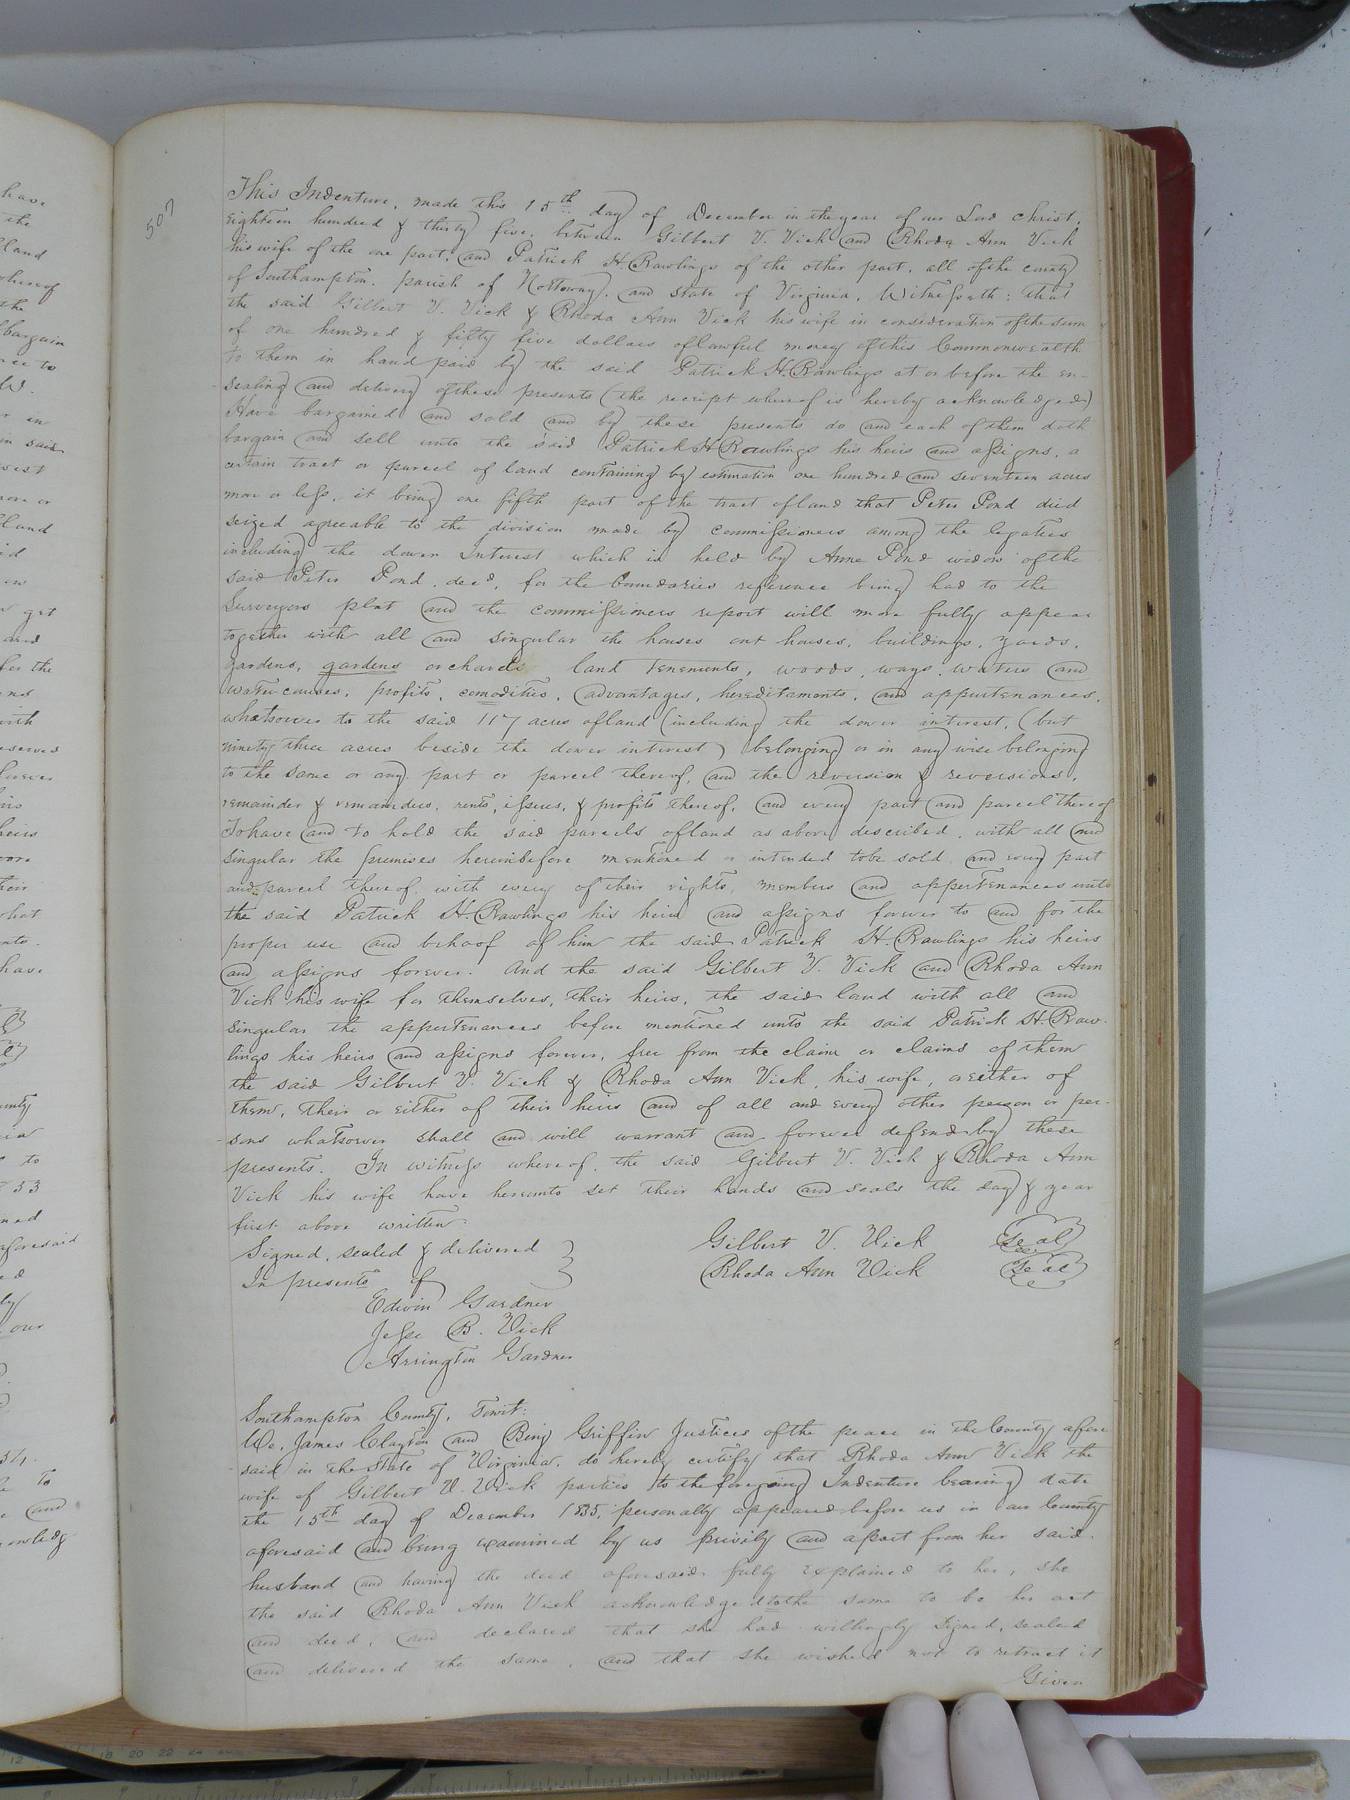 507
This Indenture, made this 15th day of December in the year of our Lord Christ,
eighteen hundred & thirty five, between Gilbert V. Vick and Rhoda Ann Vick
his wife of the one part, and Patrick H. Rawlings of the other part, all of the county
of Southampton, parish of Nottoway, and State of Virginia, Witnesseth: that
the said Gilbert V. Vick & Rhoda Ann Vick his wife in consideration of the sum
of one hundred & fifty five dollars of lawful money of this Commonwealth
to them in hand paid by the said Patrick H. Rawlings at or before the en-
sealing and delivery of these presents (the receipt whereof is hereby acknowledged)
Have bargained and sold and by these presents do and each of them doth
bargain and sell unto the said Patrick H Rawlings his heirs and assigns, a
certain tract or parcel of land containing by estimation one hundred and seventeen acres
more or less, it being one fifth part of the tract of land that Peter Pond died
seized agreeable to the division made by commissioners among the legatees
including the dower Interest which is held by Anne Pond widow of the
said Peter Pond, decd, for the boundaries reference being had to the
Surveyors plat and the commissioners report will more fully appear
together with all and singular the houses out houses, buildings, yards,
gardens, gardens orchards land tenements, woods, ways, waters and
water causes, profits, comodities, advantages, hereditaments, and appurtenances,
whatsoever to the said 117 acres of land (including the dower interest, (but
ninety three acres beside the dower interest) belonging or in any wise belonging
to the same or any part or parcel thereof, and the reversion & reversions,
remainder & remainders, rents, issues, & profits thereof, and every part and parcel thereof
To have and to hold the said parcels of land as above described, with all and
singular the premises hereinbefore mentioned or intended to be sold, and every part
and parcel thereof, with every of their rights, members and appertenances unto
the said Patrick H. Rawlings his heirs and assigns forever to and for the
proper use and behoof of him the said Patrick H. Rawlings his heirs
and assigns forever. And the said Gilbert V. Vick and Rhoda Ann
Vick his wife for themselves, their heirs, the said land with all and
singular the appertenances before mentioned unto the said Patrick H. Raw-
lings his heirs and assigns forever, free from the claim or claims of them
the said Gilbert V. Vick & Rhoda Ann Vick, his wife, or either of
them, their or either of their heirs and of all and every other person or per-
sons whatsoever shall and will warrant and forever defend by these
presents. In witness whereof, the said Gilbert V. Vick & Rhoda Ann
Vick his wife have hereunto set their hands and seals the day & year
first above written.
Signed, sealed & delivered Gilbert V. Vick Seal
In presents of Rhoda Ann Vick Seal
Edwin Gardner
Jesse B. Vick
Arrington Gardner
Southampton County, Towit:
We, James Clayton and Benj Griffin Justices of the peace in the County afore
said in the State of Virginia, do hereby certify that Rhoda Ann Vick the
wife of Gilbert V. Vick parties to the foregoing Indenture bearing date
the 15th day of December 1835, personally appeared before us in our County
aforesaid and being examined by us privily and apart from her said
husband and having the deed aforesaid fully explained to her, she
the said Rhoda Ann Vick acknowledged to the same to be her act
and deed, and declared that she had willingly signed, sealed
and delivered the same, and that she wished not to retract it
Given